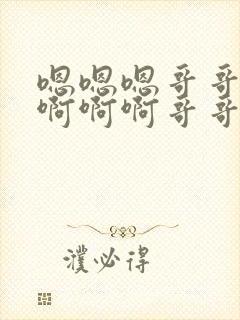 嗯嗯嗯哥哥
啊啊啊哥哥
濮必得